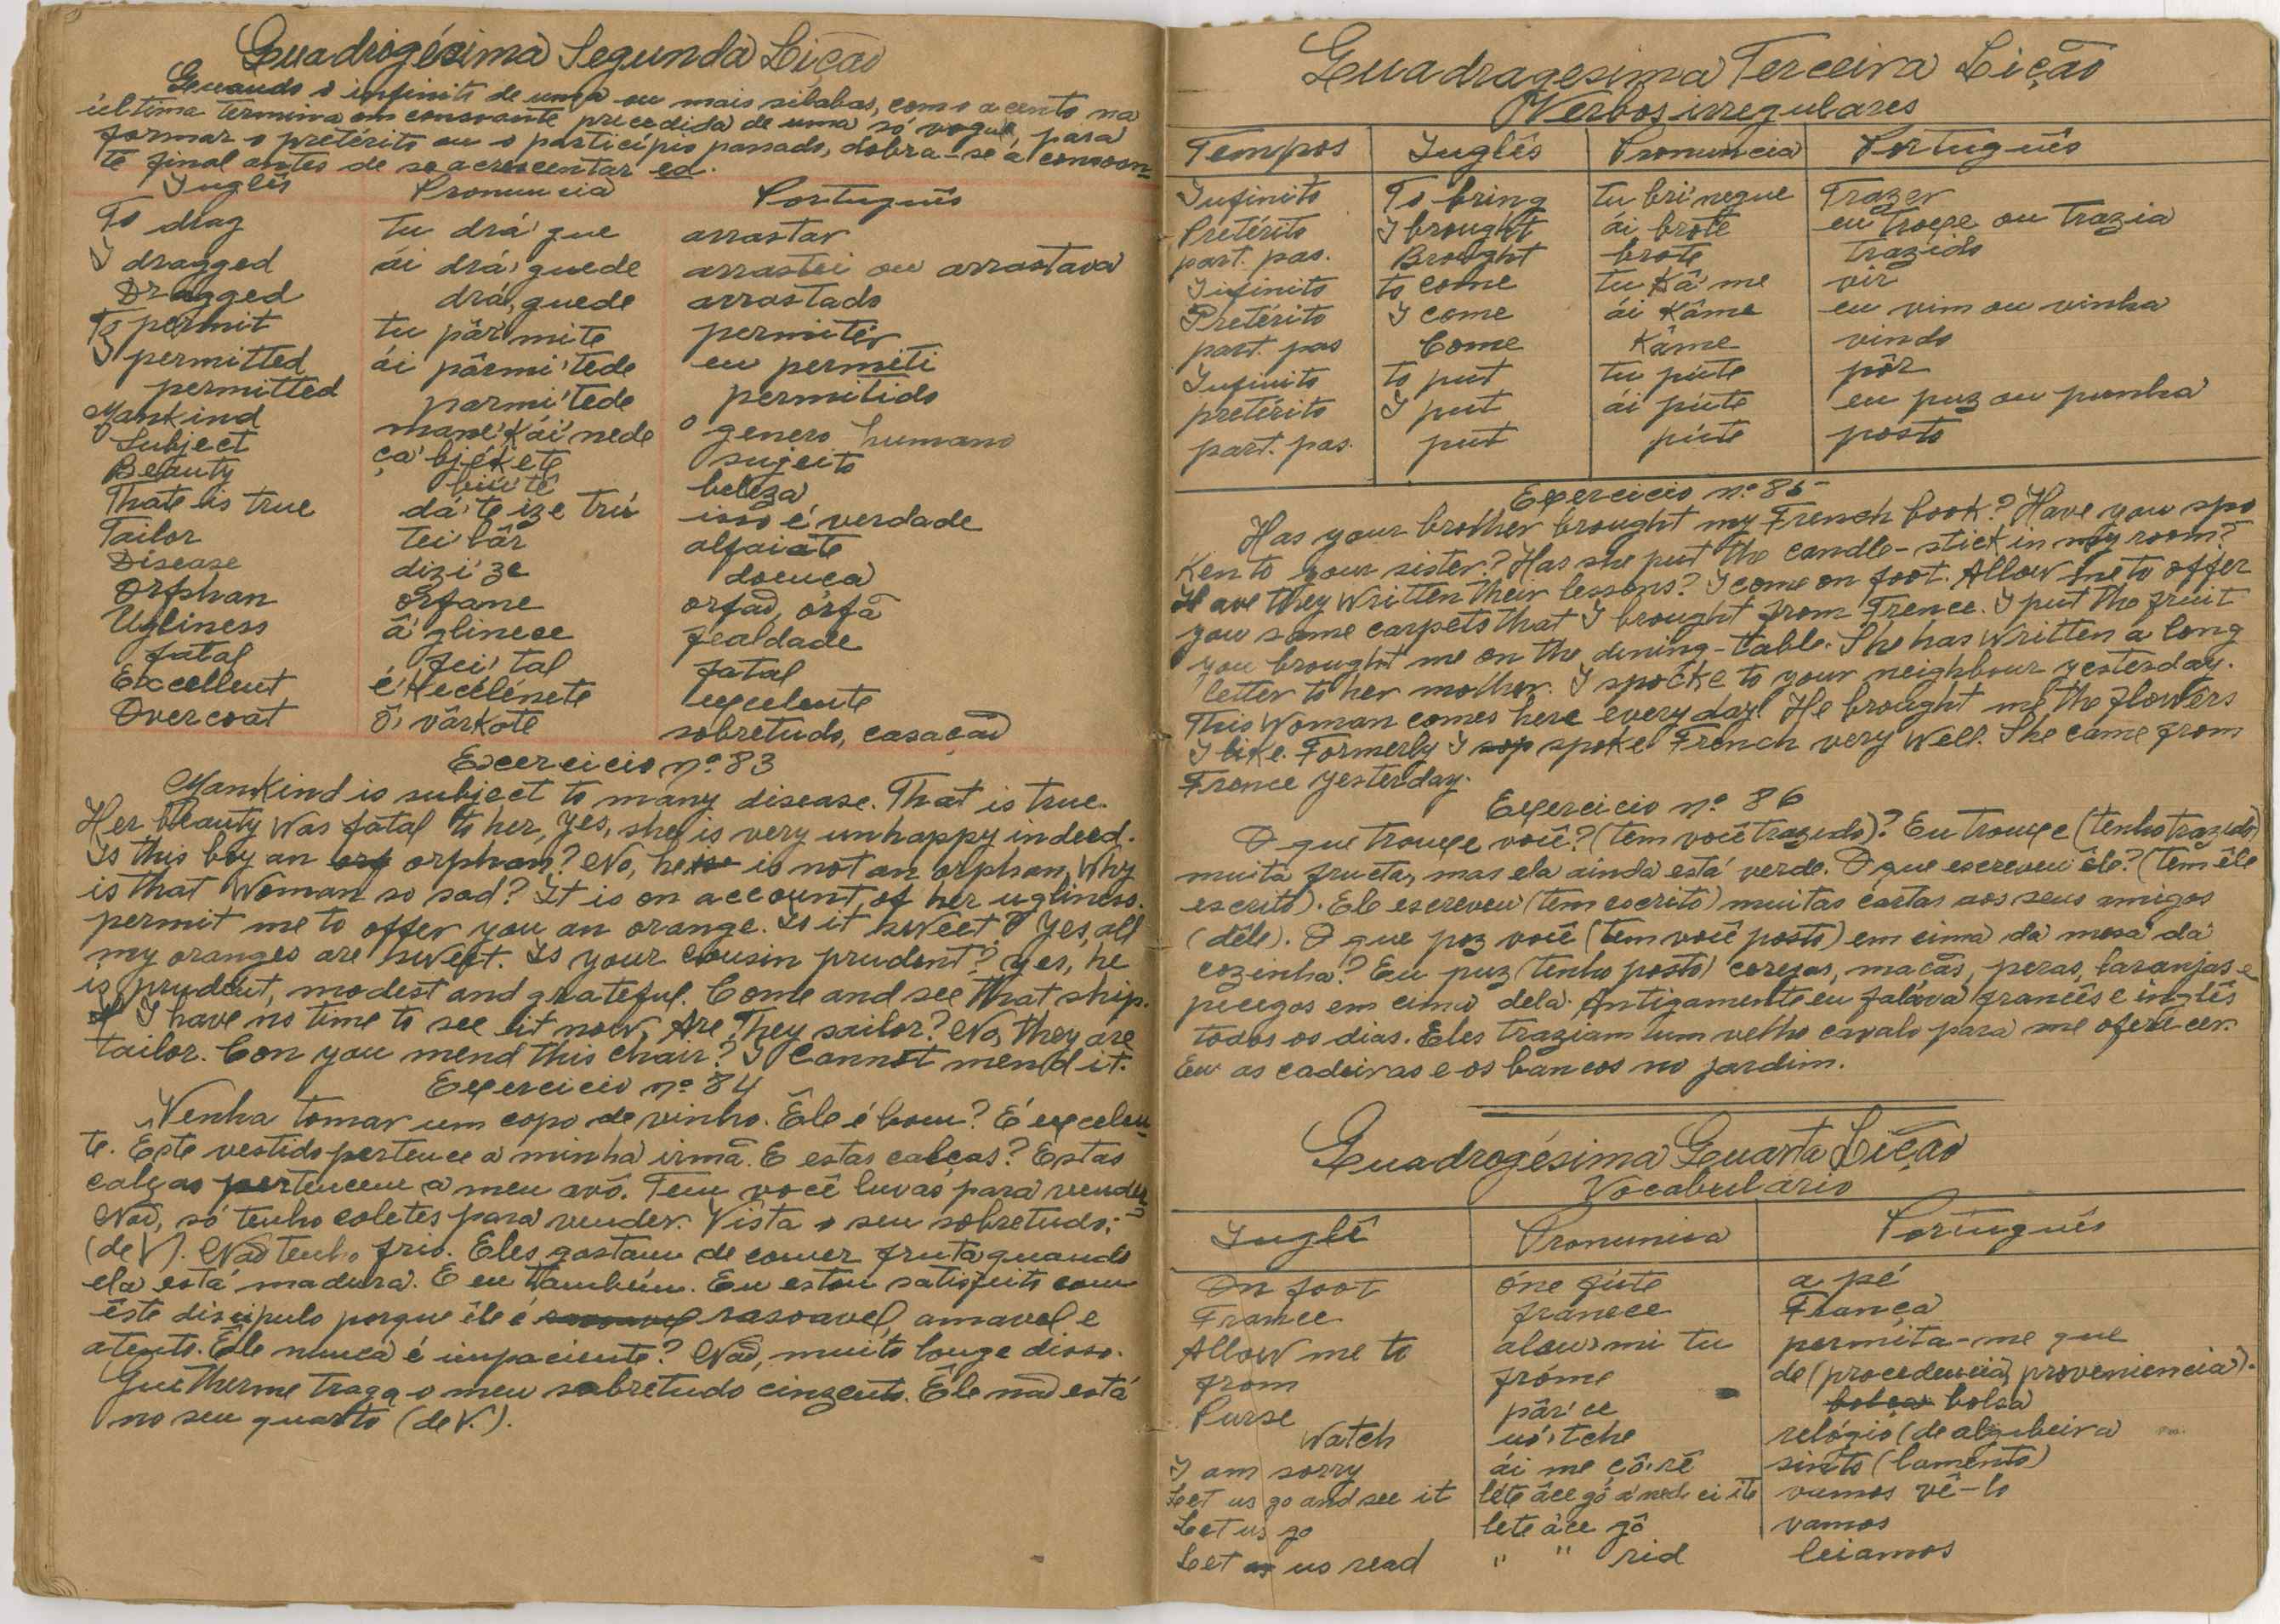 Quadrogésima Segunda Lição
Quando o infinito de uma ou mais silabas, com o acento na
última termina em consoante precedida de uma só vogal, para
formar o pretérito ou o particípio passado, dobra-se a consoan-
te final antes de se acrescentar ed.
Inglês Pronuncia Português
To drag tu drá'gue arrastar
I dragged ái drá'guede arrastei ou arrastava
Dragged drá'guede arrastado
To permit tu pârmite permitir
I permitted ái pârmi'tede eu permiti
permitted parmi'tede permitido
Mankind mane'kái'nede o genero humano
Subject çâ'bjékete sujeito
Beauty biú'tê beleza
Thate is true dá'te ize trú isso é verdade
Tailor tei'lâr alfaiate
Disease dizi'ze doença
Orphan órfane orfaõ, órfã
Ugliness â'glinece fealdade
fatal fei'tal fatal
Excellent é'kecélénete excelente
Overcoat ô'vârkote sobretudo, casacaõ
Exercicio nº 83
Mankind is subject to many disease. That is true.
Her beauty was fatal to her, yes, she is very unhappy indeed.
Is this boy an orphan? No, he is not an orphan, Why
is that Woman so sad? It is on account of her ugliness.
permit me to offer you an orange. Is it sweet? Yes, all
my oranges are sweet. Is your cousin prudent? yes, he
is prudent, modest and grateful. Come and see that ship.
I have no time to see it now, Are They sailor? No, they are
tailor. Con you mend this chair? I cannot mend it.
Exercicio nº 84
Venha tomar um copo de vinho. Êle é bom? É excelen-
te. Este vestido pertence a minha irmã. E estas calças? Estas
calças pertencem a meu avô. Tem você luvas para vender
Naõ, só tenho coletes para vender. Vista o seu sobretudo;
(de V). Naõ tenho frio. Eles gostam de comer fruta quando
ela está madura. E eu também. Eu estou satisfeito com
êste discipulo porque êle é rasoavel, amavel e
atento. Êle nunca é impaciente? Naõ, muito longe disso.
Guilherme traga-o meu sobretudo cinzento. Êle naõ está
no seu quarto (de V.).
Quadragesima Terceira Lição
Verbos irregulares
Tempos Inglês Pronuncia Português
Infinito To bring tu bri'negue Trazer
Pretérito I brought ái brote eu troxe ou trazia
part. pas. Brought brote trazido
Iifinito to come tu Kâ'me vir
Pretérito I come ái Kâme eu vim ou vinha
part. pas Come Kâme vindo
Infinito to put tu púte pôr
pretérito I put ái púte eu puz ou punha
part. pas. put púte posto
Exercicio nº 85
Has your brother brought my French book? Have you spo
Ken to your sister? Has she put the candle-stick in my room?
Have they Written their lessons? I come on foot. Allow me to offer
you some carpets that I brought from Frence. I put the fruit
you brought me on the dining-table. She has Written a long
letter to her mother. I spocke to your neighbour yesterday.
This Woman comes here every day! He brought me the flowers
I like. Formerly I spoke French very Well. She came from
Frence yesterday.
Exercicio nº 86
O que trouxe você? (tem você trazido)? Eu trouxe (tenho trazido)
muita fructa, mas ela ainda está verde. O que escreveu êle? (tem êle
escrito). Ele escreveu (tem escrito) muitas cartas aos seus amigos
(dêle). O que poz você (tem você posto) em cima da mesa da
cozinha? Eu puz (tenho posto) cerejas, maçãs, peras, laranjas e
pecegos em cima dela. Antigamente eu falava francês e inglês
todos os dias. Eles traziam um velho cavalo para me oferecer.
Eu as cadeiras e os bancos no jardim.
Quadrogésima Quarta Lição
Vocabulário
Inglê Pronunica Português
On foot óne fúte a pé
France franece França
Allow me to alau'mi tu permita-me que
from fróme de (procedencia, proveniencia).
Purse pâr'ce bolsa
Watch uó'tche relógio (de algibeira
I am sorry ái me çô'rê sinto (lamento)
Let us go and see it léte âce gô a'nede ci ite vamos vê-lo
Let us go lete âce gô vamos
Let us read " " rid leiamos